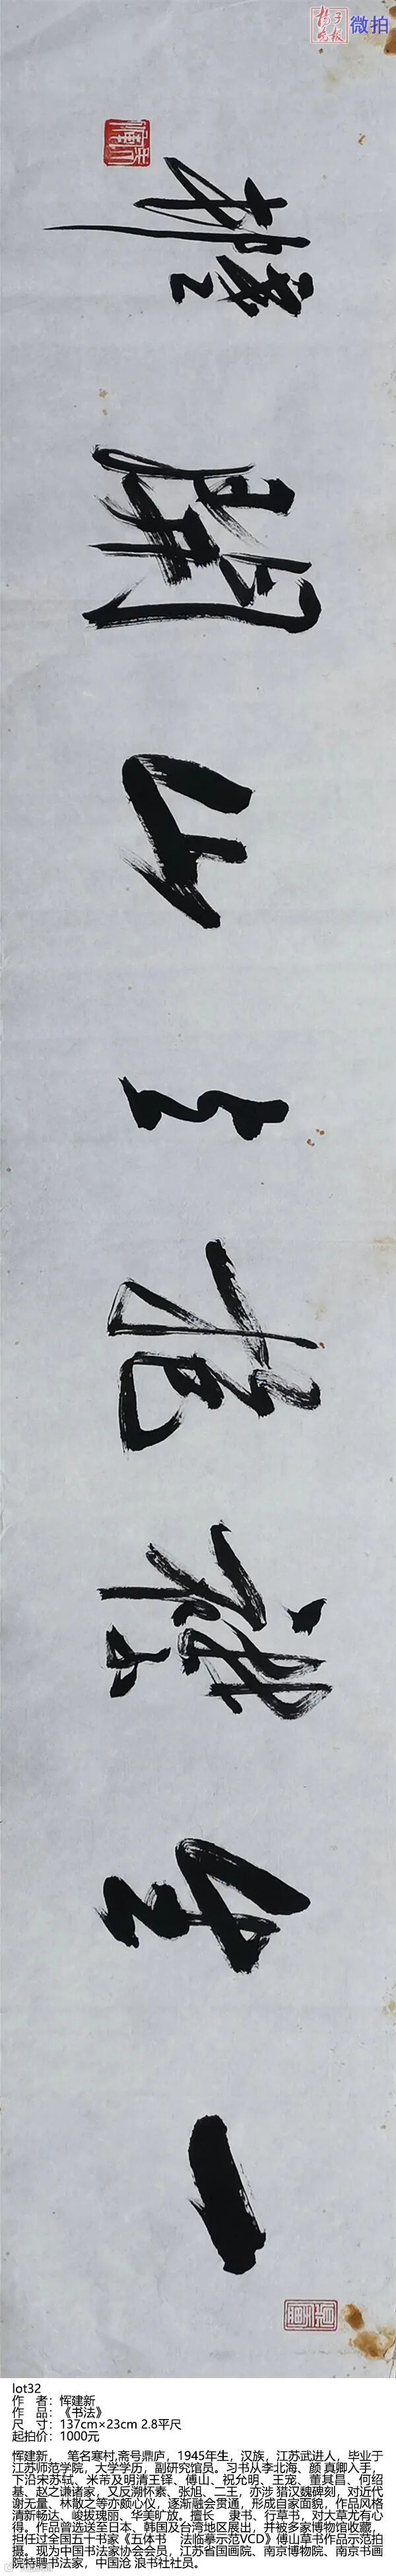 扬子晚报 微拍
一生襟抱与山開
lot32
作 者：恽建新
作 品：《书法》
尺 寸：137cm×23cm 2.8平尺
起拍价：1000元
恽建新， 笔名寒村,斋号鼎庐，1945年生，汉族，江苏武进人，毕业于
江苏师范学院，大学学历，副研究馆员。习书从李北海、颜 真卿入手，
下沿宋苏轼、米芾及明清王铎、傅山、祝允明、王宠、董其昌、何绍
基、赵之谦诸家，又反溯怀素、张旭、二王，亦涉 猎汉魏碑刻，对近代
谢无量、林散之等亦颇心仪，逐渐融会贯通，形成自家面貌，作品风格
清新畅达、峻拔瑰丽、华美旷放。擅长 隶书、行草书，对大草尤有心
得。作品曾选送至日本、韩国及台湾地区展出，并被多家博物馆收藏，
担任过全国五十书家《五体书 法临摹示范VCD》傅山草书作品示范拍
摄。现为中国书法家协会会员，江苏省国画院、南京博物院、南京书画
院特聘书法家，中国沧 浪书社社员。